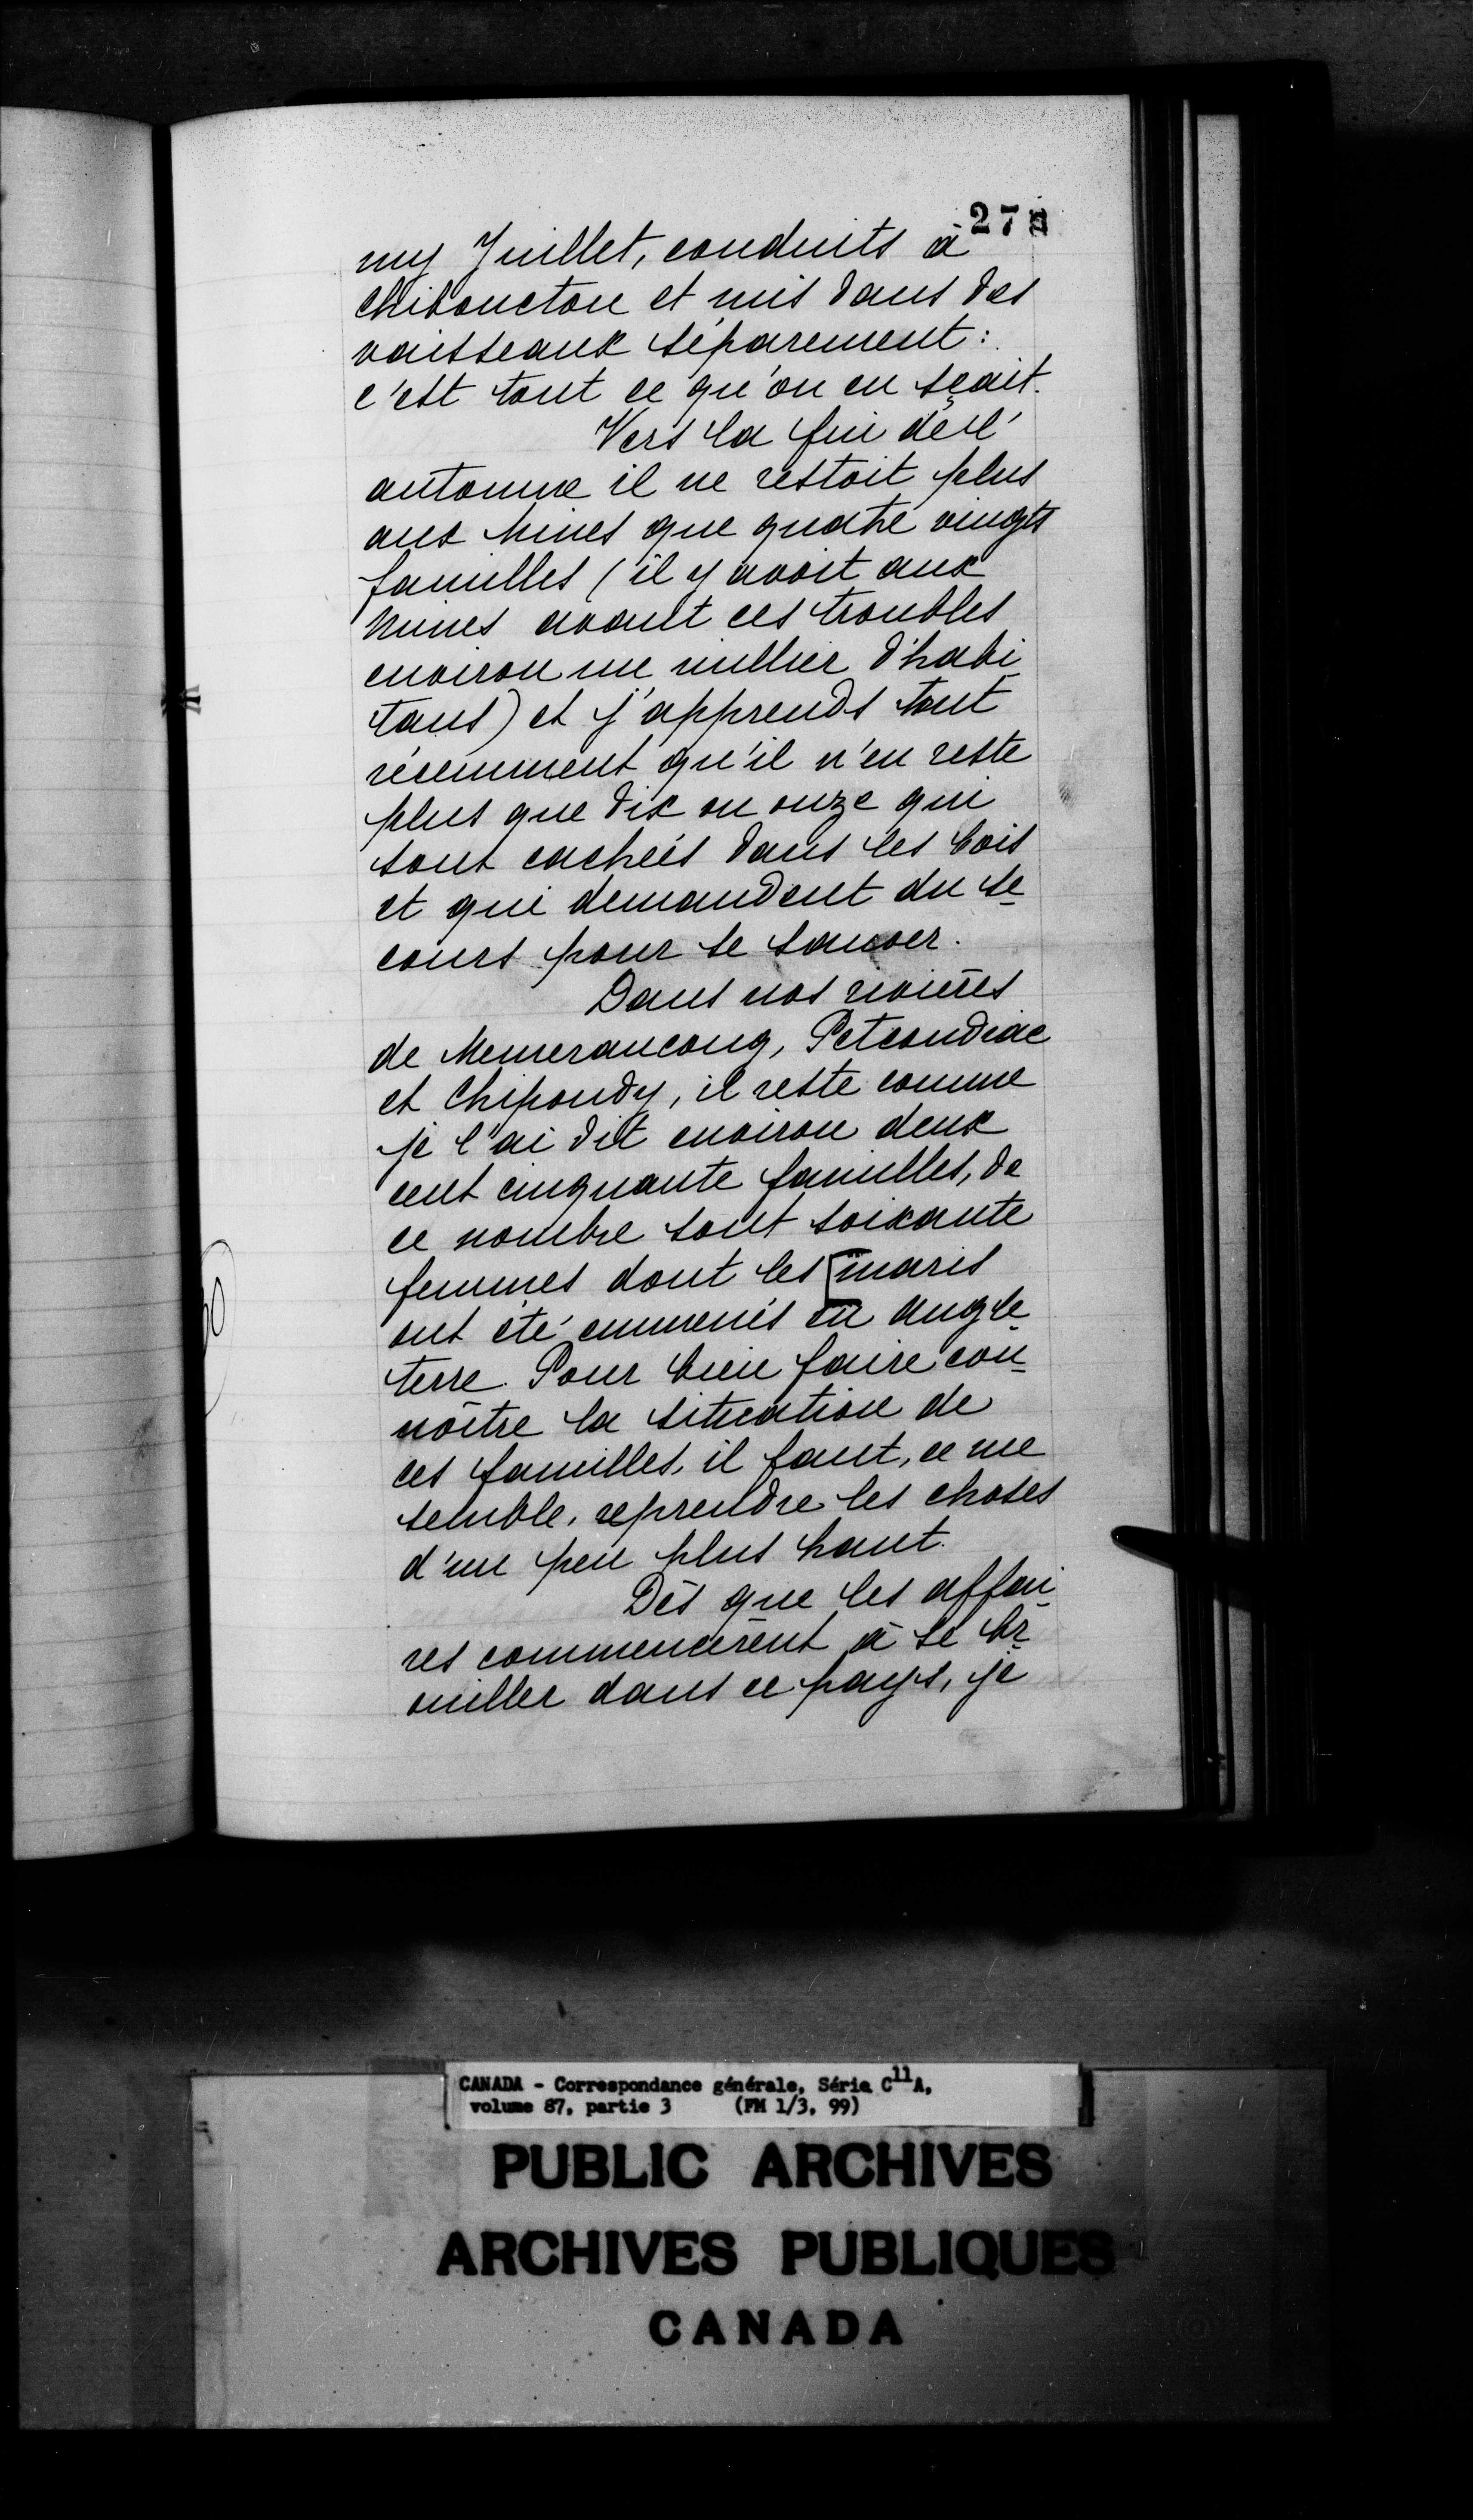 27
my Juillet, conduits à
Chiboucton et mis dans des
vaisseaux séparement:
c'est tout ce qu'on en sçait.
Vers la fin de l'
automne il ne restoit plus
aux Mines que quatre vingts
familles (il y avoit aux
Mines avant ces troubles
environ un millier d'habi
tans) et j'apprends tout
récemment qu'il n'en reste
plus que dix ou onze qui
sont cachées dans les bois
et qui demandent du se
cours pour se sauver.
Dans nos rivières
de Memerancouq, Petcoudiac
et Chipoudy, il reste comme
je l'ai dit environ deux
cent cinquante familles, de
ce nombre sont soixante
femmes dont les [maris
ont été emmenés en Angle
terre. Pour bien faire con
nôitre la situation de
ces familles, il faut, ce me
semble, reprendre les choses
d'un peu plus haut.
Dès que les affai
res commencèrent à se br
ouiller dans ce pays, je
CANADA - Correspondance générale, Série C11A,
volume 87, partie 3 (FM 1/3, 99)
PUBLIC ARCHIVES
ARCHIVES PUBLIQUES
CANADA